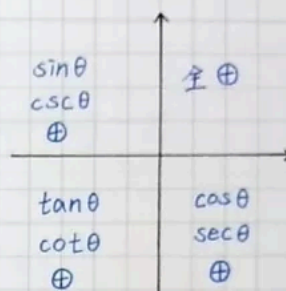 sinθ
cscθ
⊕
全 ⊕
tanθ
cotθ
⊕
cosθ
secθ
⊕